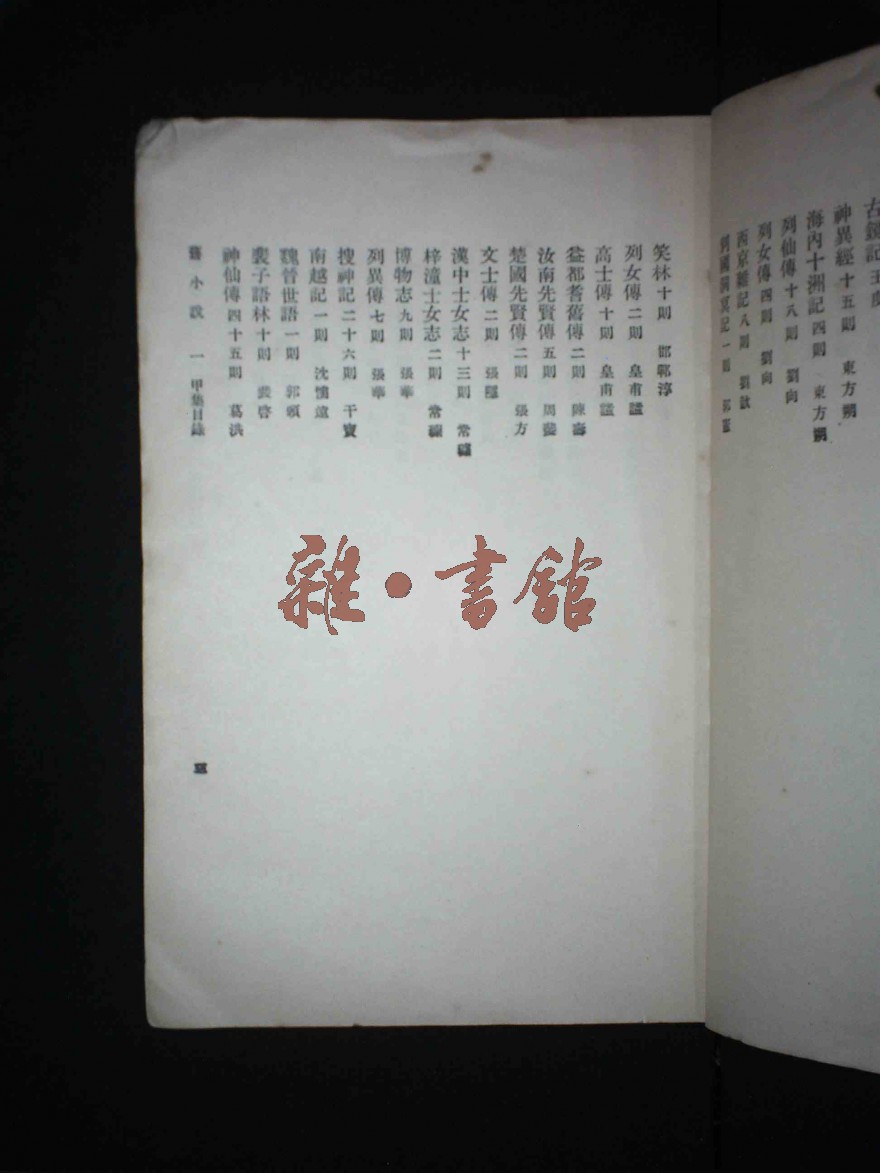 古鏡記王度
神異經十五則 東方朔
海內十洲記四則 東方朔
列仙傳十八則 劉向
列女傳四則 劉向
西京雜記八則 劉歆
別國洞冥記一則 郭憲
笑林十則 邯鄲淳
列女傳二則 皇甫謐
高士傳十則 皇甫謐
益都耆舊傳二則 陳壽
汝南先賢傳五則 周斐
楚國先賢傳二則 張方
文士傳二則 張隱
漢中士女志十三則 常璩
梓潼士女志二則 常璩
博物志九則 張華
列異傳七則 張華
搜神記二十六則 干寶
南越記一則 沈懷遠
魏晉世語一則 郭頒
裴子語林十則 裴啓
神仙傳四十五則 葛洪
舊小說 一 甲集目錄
雜·書館